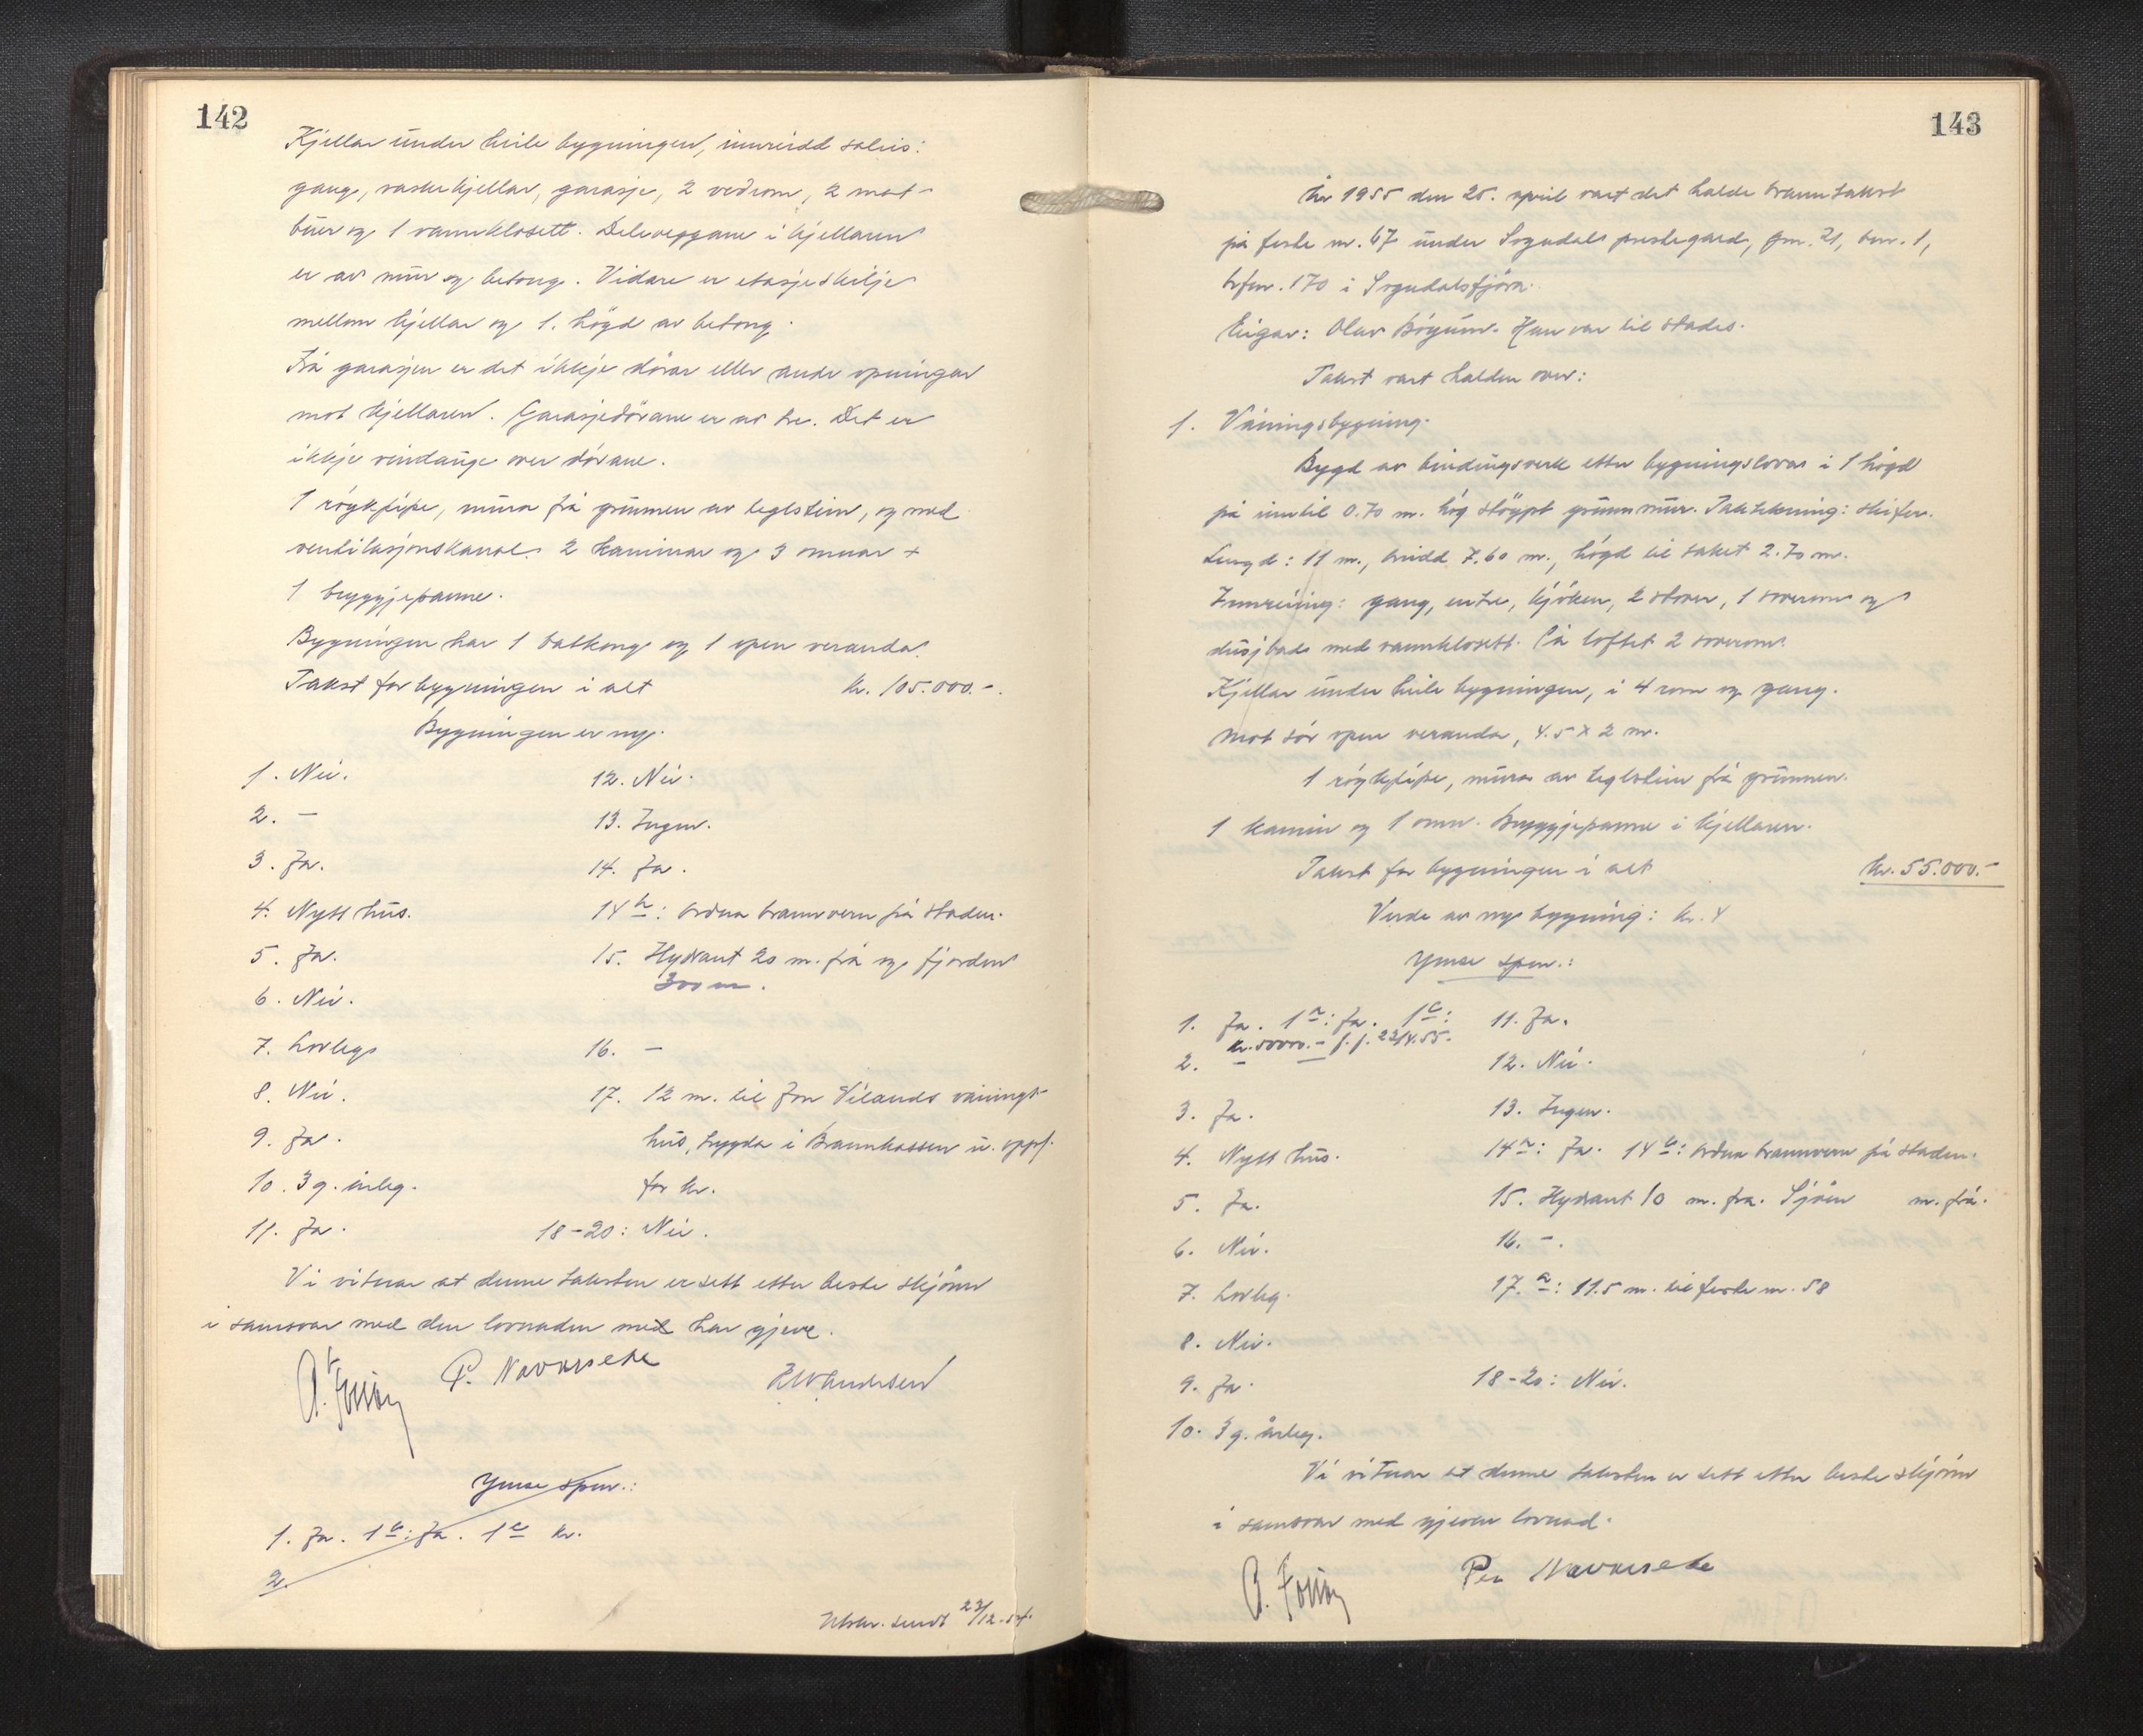 142
Kjellar under heile bygningen, innreidd soleis:
gang, vaskekjellar, garasje, 2 vedrom, 2 mat-
buer og 1 vannklosett. Deleveggane i kjellaren
er av mur og betong. Vidare er etasjeskilje
mellom kjellar og 1. högd av betong.
Frå garasjen er det ikkje dörar eller andre opningar
mot kjellaren. Garasjedörane er av tre. Det er
ikkje vindauge over dörane.
1 röykpipe, mura frå grunnen av teglstein, og med
ventilasjonskanal. 2 kaminar og 3 omnar +
1 bryggjepanne.
Bygningen har 1 balkong og 1 open veranda.
Takst for bygningen i alt kr. 105.000.-.
Bygningen er ny.
1. Nei. 12. Nei.
2. – 13. Ingen.
3. Ja. 14. Ja.
4. Nytt hus. 14b: Ordna brannvern på staden.
5. Ja. 15. Hydrant 20 m. frå og fjorden
300 m.
6. Nei.
7. Lovleg 16. –
8. Nei. 17. 12 m. til Jon Vilands vånings-
9. Ja. hus, trygda i Brannkassen u. oppf.
10. 3 g. årleg. for kr.
11. Ja. 18-20: Nei.
Vi vitnar at denne taksten er sett etter beste skjönn
i samsvar med den lovnaden me har gjeve.
P. Navarsete
Ymse spm.:
1. Ja. 1b: Ja. 1c kr.
2.
Utskr. sendt 22/12-54.
143
År 1955 den 25. april vart det halde branntakst
på feste nr. 67 under Sogndals prestegard, gnr. 21, bnr. 1,
brfnr. 170 i Sogndalsfjöra.
Eigar: Olav Bögum. Han var til stades.
Takst vart halden over:
1. Våningsbygning.
Bygd av bindingsverk etter bygningslova i 1 högd
på inntil 0.70 m. hög stöypt grunnmur. Taktekning: skifer.
Lengd: 11 m., breidd 7.60 m., högd til taket 2.70 m.
Innreiing: gang, entre, kjöken, 2 stover, 1 soverom og
dusjbad med vannklosett. På loftet 2 soverom.
Kjellar under heile bygningen, i 4 rom og gang.
Mot sör open veranda, 4.5 x 2 m.
1 röykpipe, mura av teglstein frå grunnen.
1 kamin og 1 omn. Bryggjepanne i kjellaren.
Takst for bygningen i alt kr. 55.000.-
Verde av ny bygning: kr. 4
Ymse spm.:
1. Ja. 1a: Ja. 1c: 11. Ja.
kr. 50000.- f.f. 23/4.55.
2. – 12. Nei.
3. Ja. 13. Ingen.
4. Nytt hus. 14a: Ja. 14b: Ordna brannvern på staden.
5. Ja. 15. Hydrant 10 m. fra. Sjöen m. frå.
6. Nei. 16. –.
7. Lovleg. 17.a: 11.5 m. til feste nr. 58
8. Nei.
9. Ja. 18-20: Nei.
10. 3 g. årleg.
Vi vitnar at denne taksten er sett etter beste skjönn
i samsvar med gjeven lovnad.
Per Navarsete